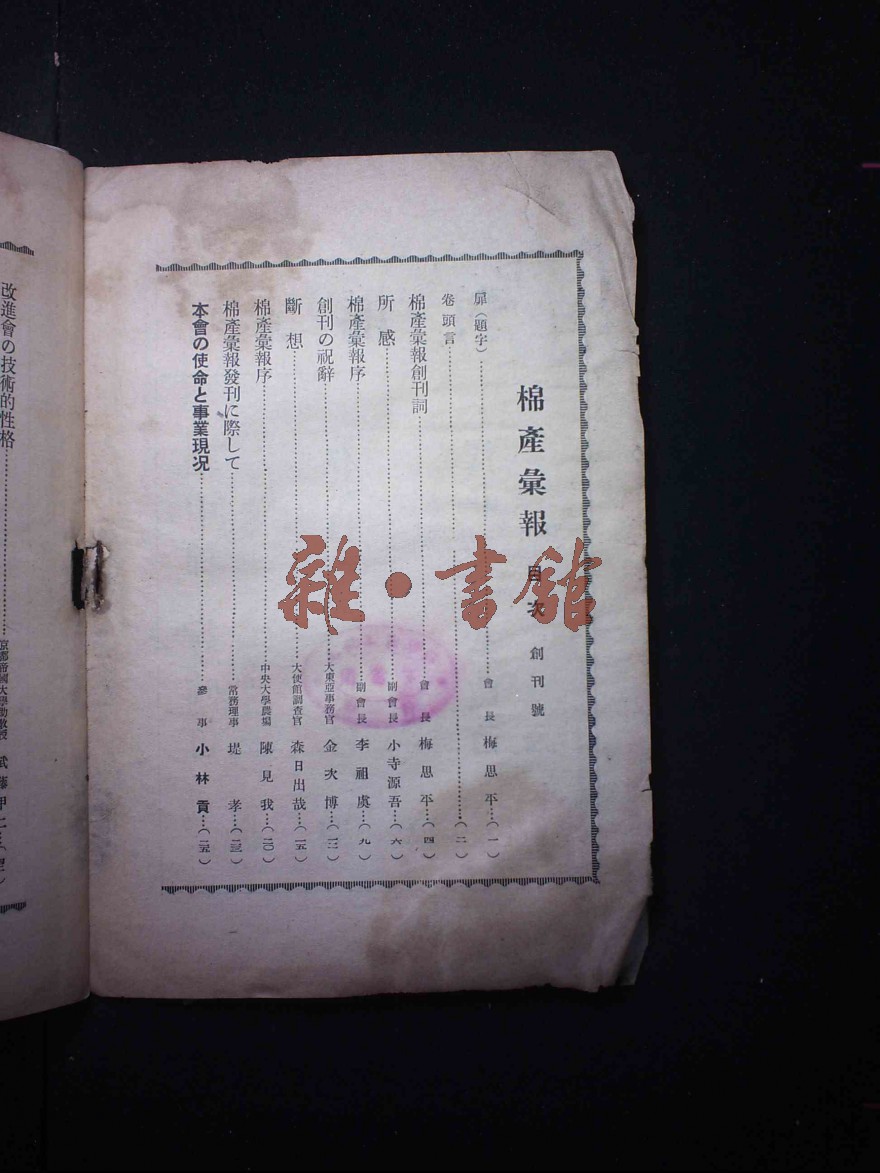 棉產彙報 目次 創刊號
扉(題字)……會長 梅思平…(一)
卷頭言……(二)
棉產彙報創刊詞……會長 梅思平…(四)
所感……副會長 小寺源吾…(六)
棉產彙報序……副會長 李祖虞…(九)
創刊の祝辭……大東亞事務官 金次博…(一二)
斷想……大使館調查官 森日出哉…(一五)
棉產彙報序……中央大學農場 陳見我…(二〇)
棉產彙報發刊に際して……常務理事 堤孝…(二三)
本會の使命と事業現況……參事 小林貢…(二五)
改進會の技術的性格……京都帝國大學助教授
雜·書館